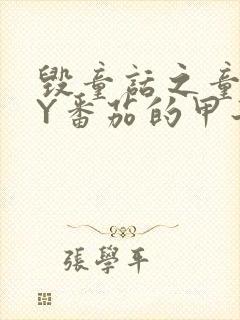 毀童話之童
Y番茄的甲
張學平